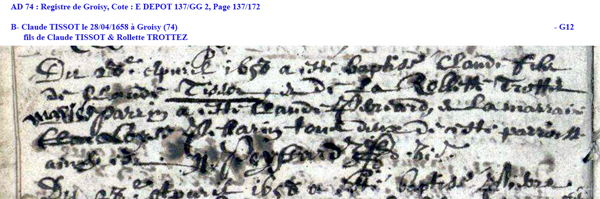 AD 74 : Registre de Groisy, Cote : E DEPOT 137/GG 2, Page 137/172
B- Claude TISSOT le 28/04/1658 à Groisy (74) - G12
fils de Claude TISSOT & Rollette TROTTEZ
Du 28e apvril 1658 a esté baptisé Claude fils
de Claude Tissot, & de La Rollette Trottet
mariés parrin a esté Claude & La marraine
tous deux de ceste parroisse
ainsi est.
Du apvril 1658 a esté baptisé